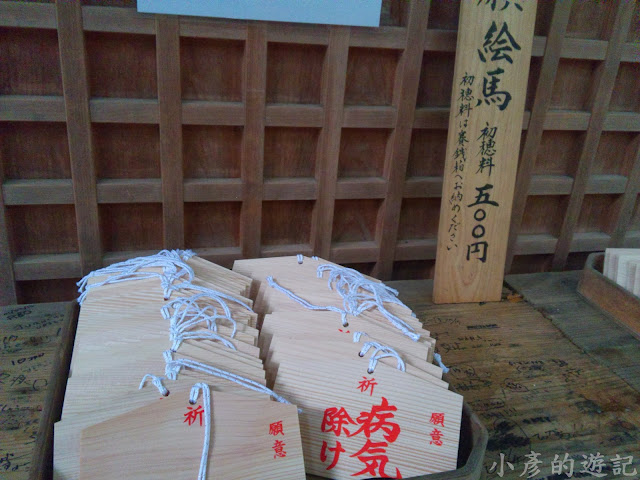 絵馬
初穂料 五〇〇円
初穂料は賽銭箱へお納めください
祈
願意
祈
願意
病気
除け
小彥的遊記